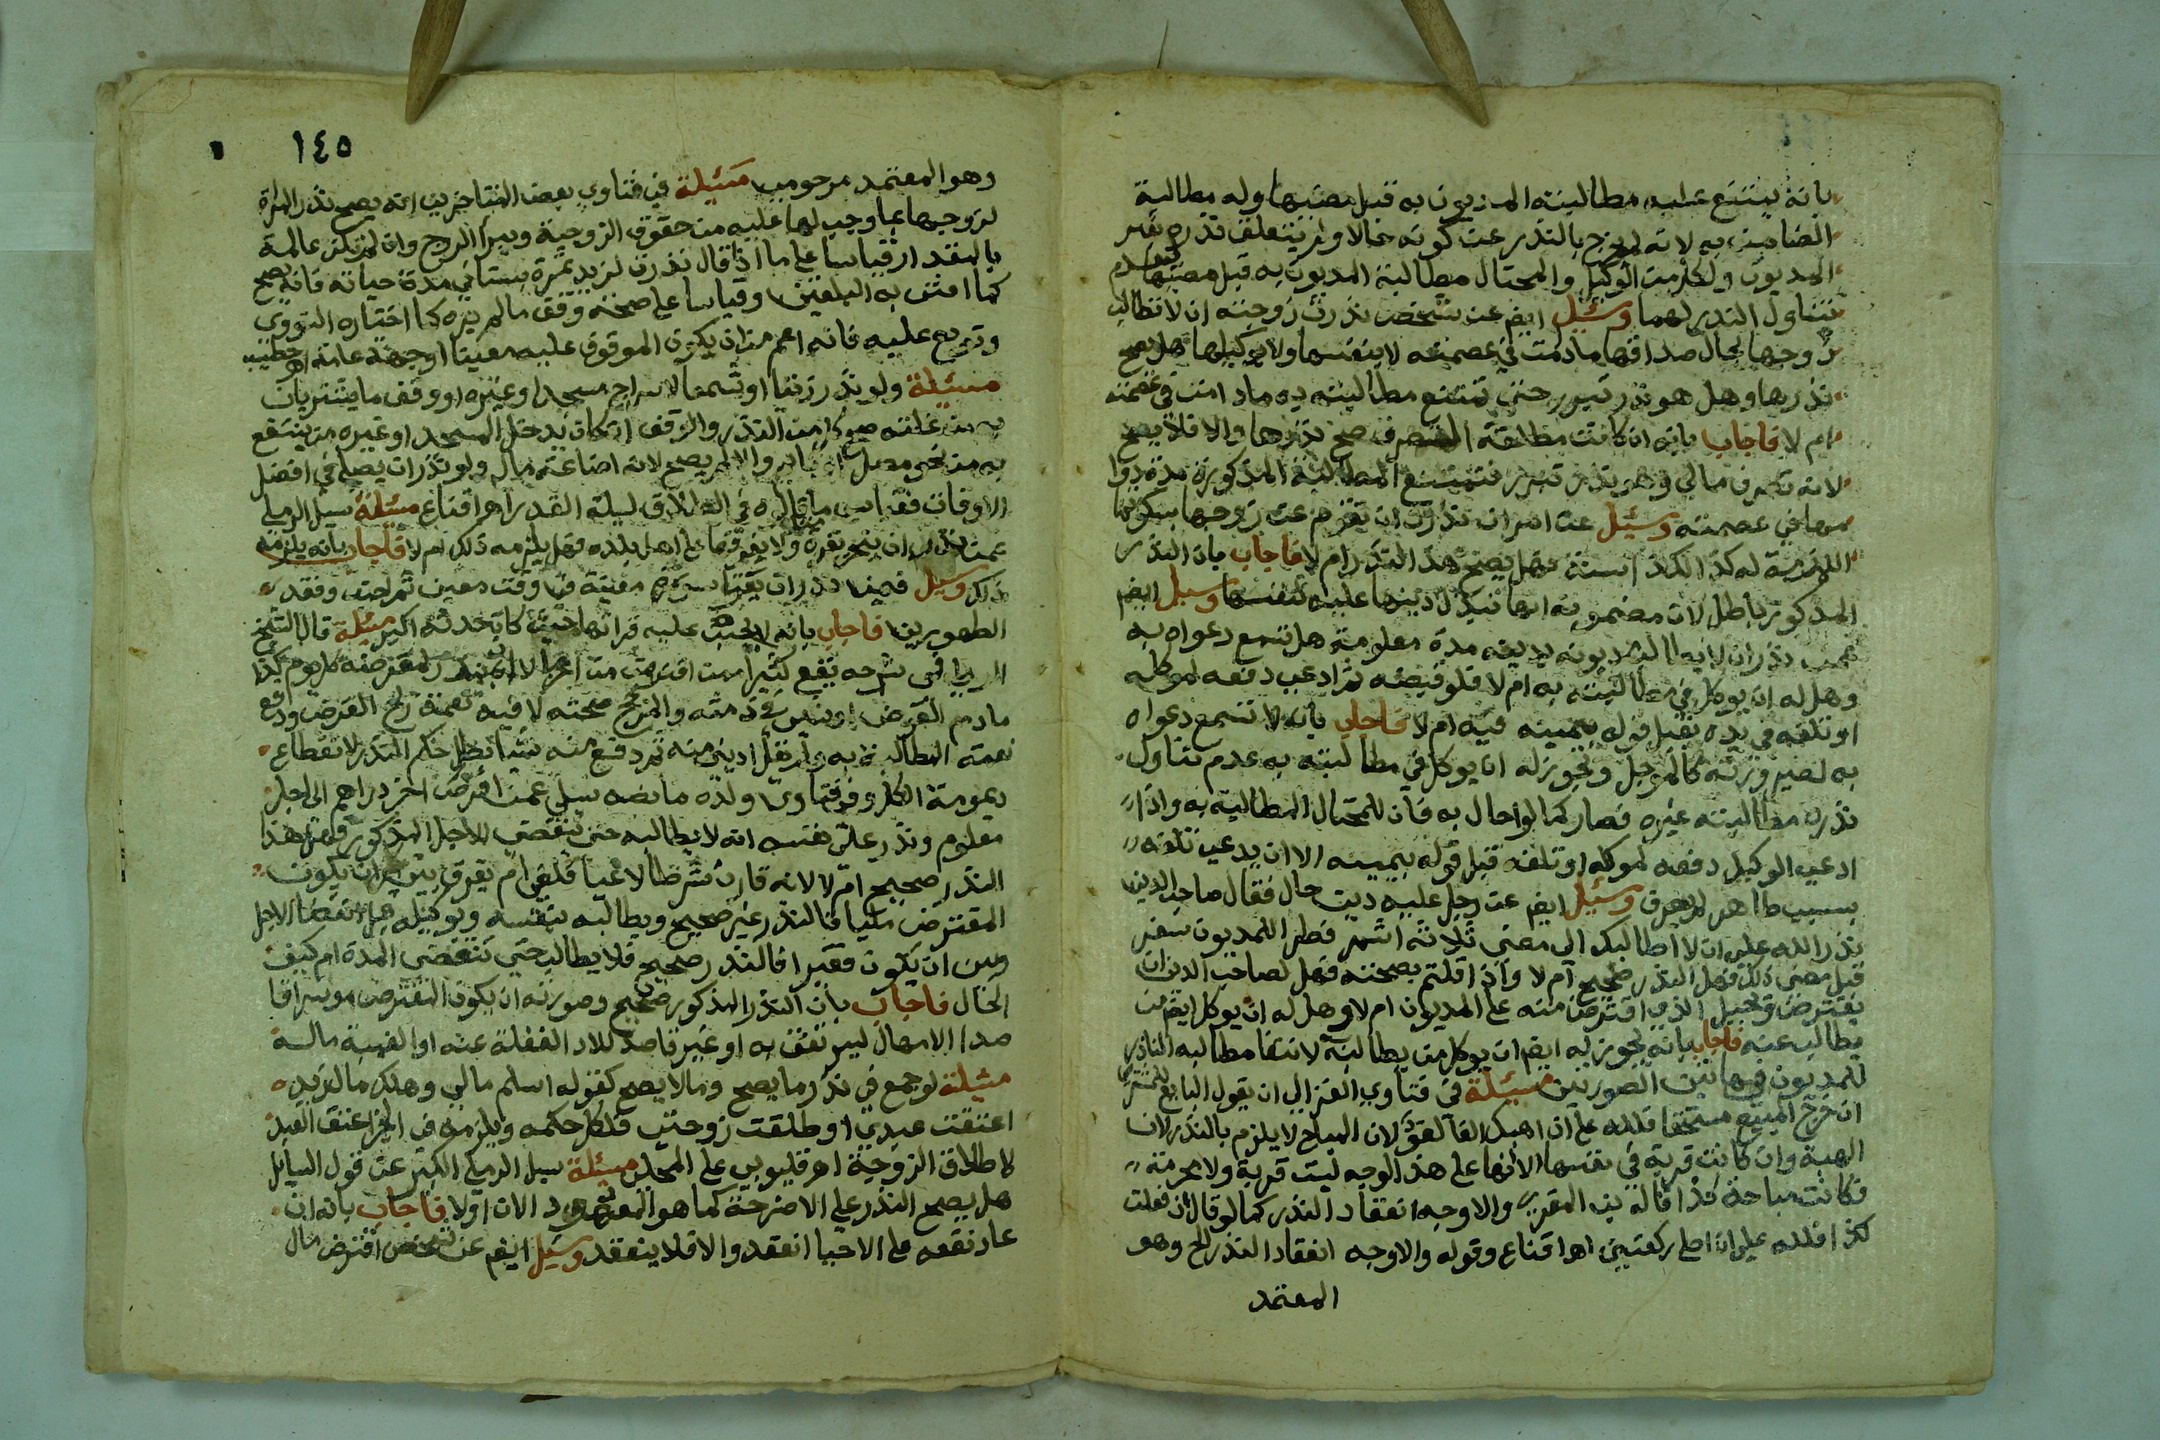 بانه يمتنع عليه مطالبته المديون به قبل مضيها وله مطالبة
الضامن به لانه لم يخرج بالنذر عن كونه حالا ولم يتعلق نذره بغير
المديون ولكل من الوكيل والمحتال مطالبة المديون به قبل مضيها لعدم
تناول النذر لهما وسئل ايضم عن شخص نذرت زوجته ان لا تطالب
زوجها بحال صداقها ما دمت في عصمته لا بنفسها ولا بوكيلها هل يصح
نذرها وهل هو نذر تبرر حتى تمتنع مطالبته به ما دامت في عصمته
ام لا فاجاب بانه ان كانت مطلقة التصرف صح نذرها والا فلا يصح
لانه تصرف مالي وهو نذر تبرر فتمتنع المطالبة المذكورة مدة دوا
مها في عصمته وسئل عن امراة نذرت ان تقوم عن زوجها بسكوتها
اللازمة له كذا كذا سنة فهل يصح هذا النذر ام لا فاجاب بان النذر
المذكور باطل لان مضمونه انها تبذل دينها عليه لنفسها وسئل ايضم
عمن نذر ان لا يطالب مديونه بدينه مدة معلومة هل تسمع دعواه به
وهل له ان يوكل في مطالبته به ام لا فلو قبضه ثم ادعى دفعه لموكله
او تلفه في يده يقبل قوله بيمينه فيه ام لا فاجاب بانه لا تسمع دعواه
به لصيرورته كالمؤجل ويجوز له ان يوكل في مطالبته به عدم تناول
نذره مطالبته غيره فصار كما لو احال به فان للمحتال المطالبة به واذا
ادعى الوكيل دفعه لموكله او تلفه قبل قوله بيمينه الا ان يدعي تلفه
بسبب ظاهر لم يعرف وسئل ايضم عن رجل عليه دين حال فقال صاحب الدين
نذر لله علي ان لا اطالبك الى مضي ثلاثة اشهر فطرا للمديون سفر
قبل مضي ذلك فهل النذر صحيح ام لا واذا قلتم بصحته فهل لصاحب الدين ان
يقترض ويحيل الذي اقترض منه على المديون ام لا وهل له ان يوكل ايضم من
يطالب عنه فاجاب بانه يجوز له ايضم ان يوكل من يطالبه لانتفا مطالبه الناذر
للمديون في هاتين الصورتين مسئلة في فتاوي الغزالي ان يقول البايع للمشتري
ان خرج المبيع مستحقا فلله علي ان اهبك الفا لغو لان المباح لا يلزم بالنذر لان
الهبة وان كانت قربة في نفسها الا انها على هذا الوجه ليست قربة ولا محرمة
فكانت مباحة كذا قاله بن المقري والاوجه انعقاد النذر كما لو قال ان فعلت
كذا فلله علي ان اصلي ركعتين اهـ اقناع وقوله والاوجه انعقاد النذر الخ وهو
المعتمد
١٤٥
وهو المعتمد مرحومي مسئلة في فتاوي بعض المتاخرين انه يصح نذر المراة
لزوجها بما وجب لها عليه من حقوق الزوجية ويبرا الزوج وان لم تكن عالمة
بالمقدار قياسا على ما اذا قال نذرت لزيد ثمرة بستاني مدة حياته فانه يصح
كما افتى به البلقيني وقياسا على صحة وقف ما لم يره كما اختاره النووي
وتوبع عليه فانه اعم من ان يكون الموقوف عليه معينا او جهة عامة اهـ خطيب
مسئلة ولو نذر زيتا او شمعا لاسراج مسجد او غيره او وقف ما يشتريان
به من غلته صح كل من النذر والوقف ان كان يدخل المسجد او غيره من ينتفع
به من نحو مصل او نايم والا لم يصح لانه اضاعة مال ولو نذر ان يصلي في افضل
الاوقات فقياس ما قالوه في الطلاق ليلة القدر اهـ اقناع مسئلة سيل الرملي
عمن نذر ان ينحر بقرة ولا يفرقها على اهل بلده فهل يلزمه ذلك ام لا فاجاب بانه يلزمه
ذلك وسيل فيمن نذر ان يقرا سورة معينة في وقت معين ثم اجنب وفقد
الطهورين فاجاب بانه لا يجب عليه قراتها حيث كان حدثه اكبر مسئلة قال الشيخ
الرملي في شرحه يقع كثيرا ممن اقترض من اخر ان نذر لمقرضه كل يوم كذا
ما دم القرض او شي في ذمته والمرجح صحته لا فيه نعمة ربح القرض ودفع
نعمة المطالبة به ولو قيل ادى منه ثم دفع منه شيا بطل حكم النذر لانقطاع
ديمومة الكل وفي فتاوي ولده ما نصه سيل عمن اقرض اخر دراهم الى اجل
معلوم ونذر على نفسه انه لا يطالبه حتى ينقضي الاجل المذكور فهل هذا
النذر صحيح ام لا لانه قارن شرطا لاغيا فلغى ام تفرق بين ان يكون
المقترض مليا فالنذر غير صحيح ويطالبه بنفسه وبوكيله قبل انقضا الاجل
وبين ان يكون فقيرا فالنذر صحيح فلا يطالب حتى تنقضي المدة ام كيف
الحال فاجاب بان النذر المذكور صحيح وصورته ان يكون المقترض موسرا قا
صدا الامهال ليرتفق به او غير قاصد للاد الغفلة عنه او الغيبة ماله
مسئلة لو جمع في نذر ما يصح وما لا يصح كقوله اسلم مالي وهلك مال زيد
اعتقت عبدي او طلقت زوجتي فلكل حكمه ويلزمه في الخبر اعتق العبد
لا طلاق الزوجة اهـ قليوبي على المحلي مسئلة سيل الرملي الكبير عن قول السايل
هل يصح النذر على الاضرحة كما هو المعهود الان او لا فاجاب بانه ان
عاد نفعه على الاحيا انعقد والا فلا ينعقد وسيل ايضم عن شخص اقترض مال